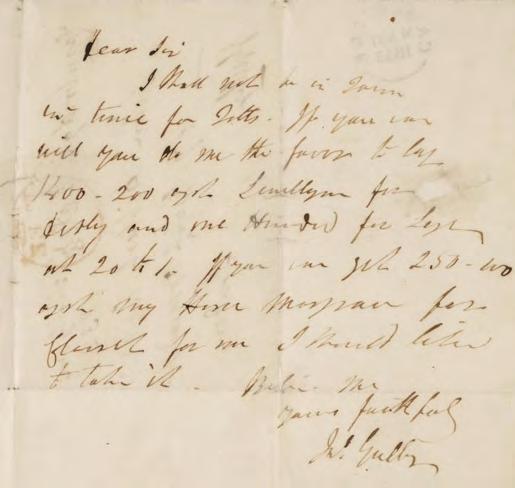 Dear Sir
I shall not be in Town
in time for Tatts. If you can
will you do me the favor to lay
1400-200 agst Lewellyn for
Derby and one Hundred for Leger
at 20 to 1. If you can get 250-100
agst my Horse for
for me I should like
to take it. Me
yours faithfully
Jno. Gully